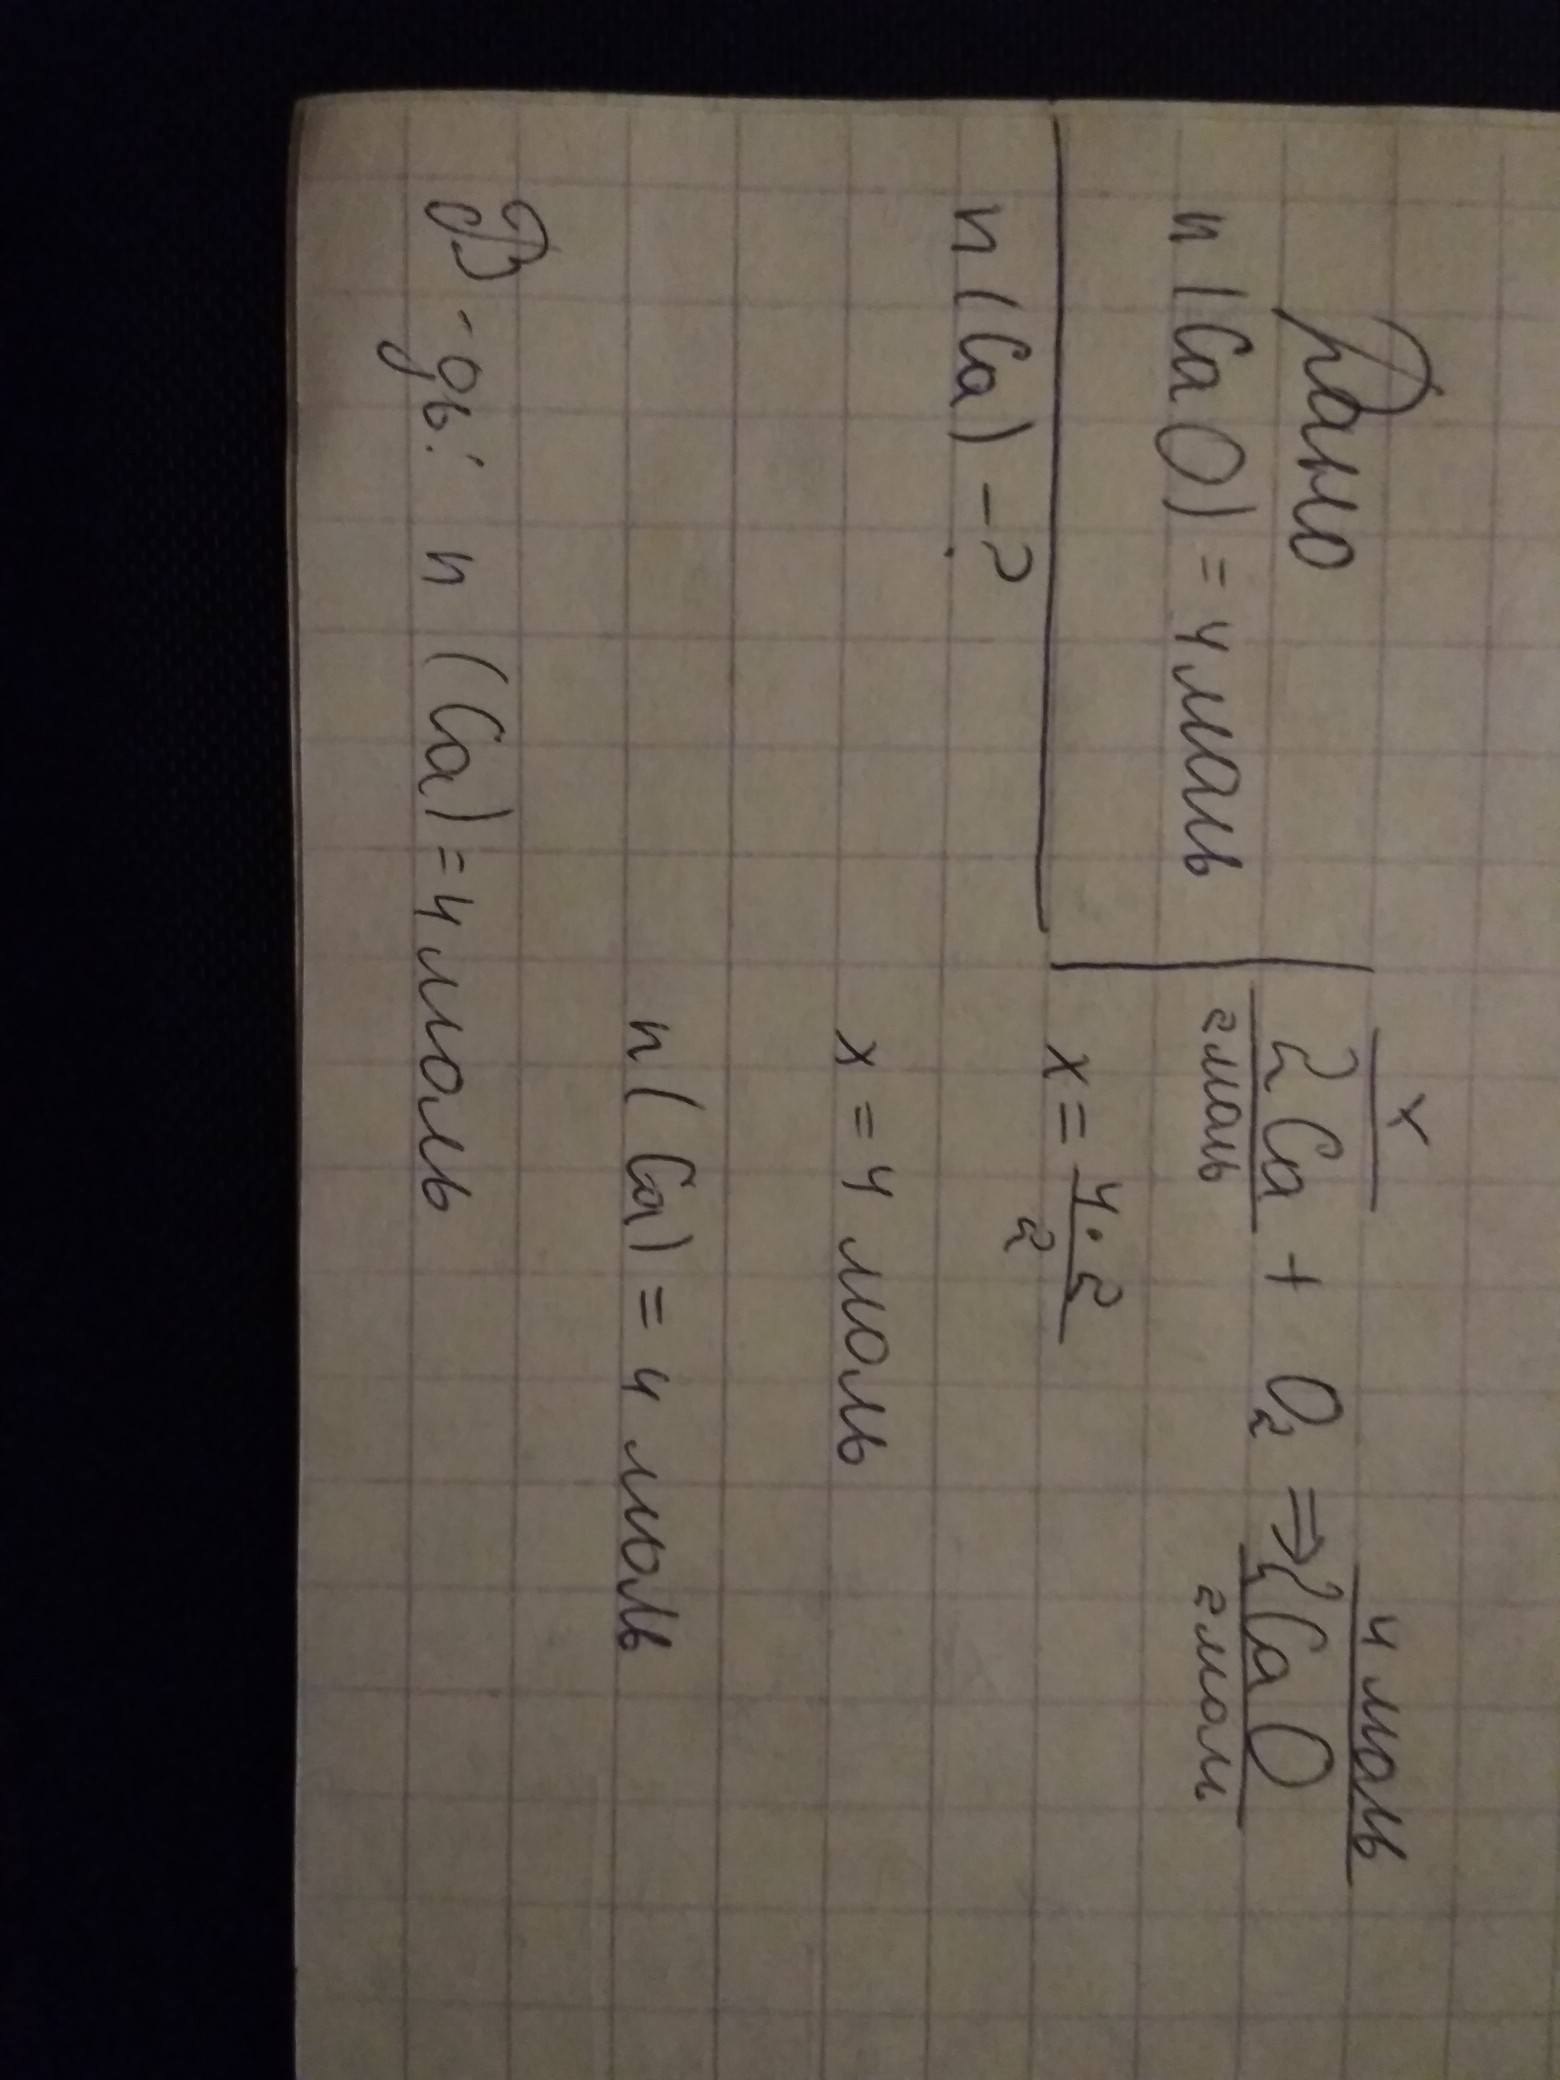 Дано
n(CaO) = 4 моль
n(Ca) - ?
x 4 моль
2Ca + O₂ ⇒ 2CaO
2моль 2моль
x = 4·2/2
x = 4 моль
n(Ca) = 4 моль
В-дь: n (Ca) = 4 моль